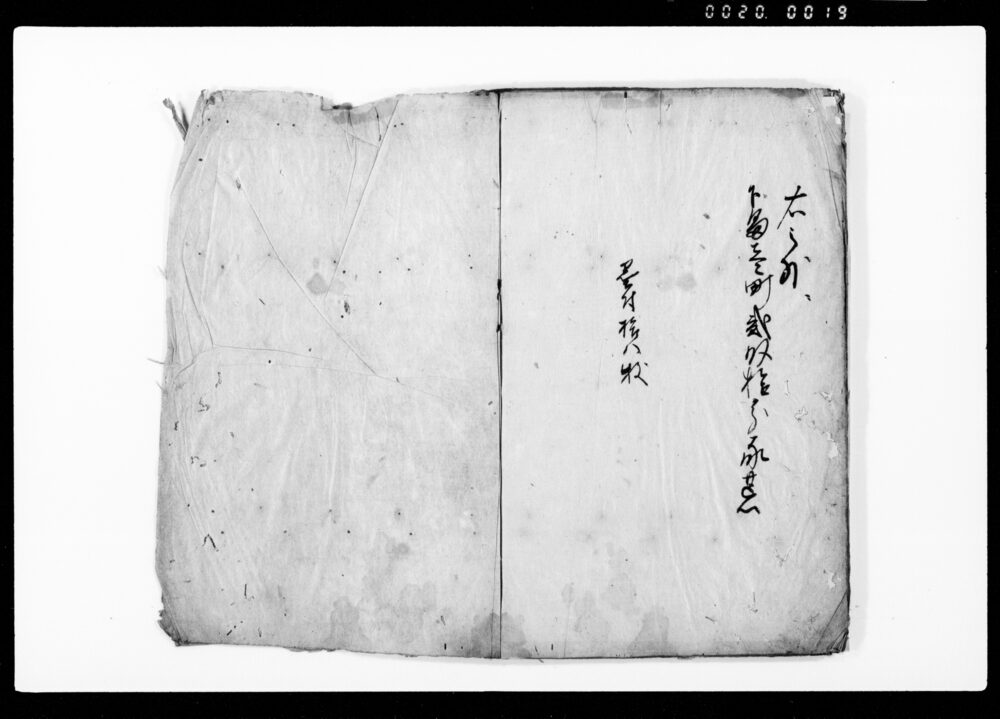 0020. 0019
右之外、
下畠壱町弐反拾分永荒
墨付拾八枚